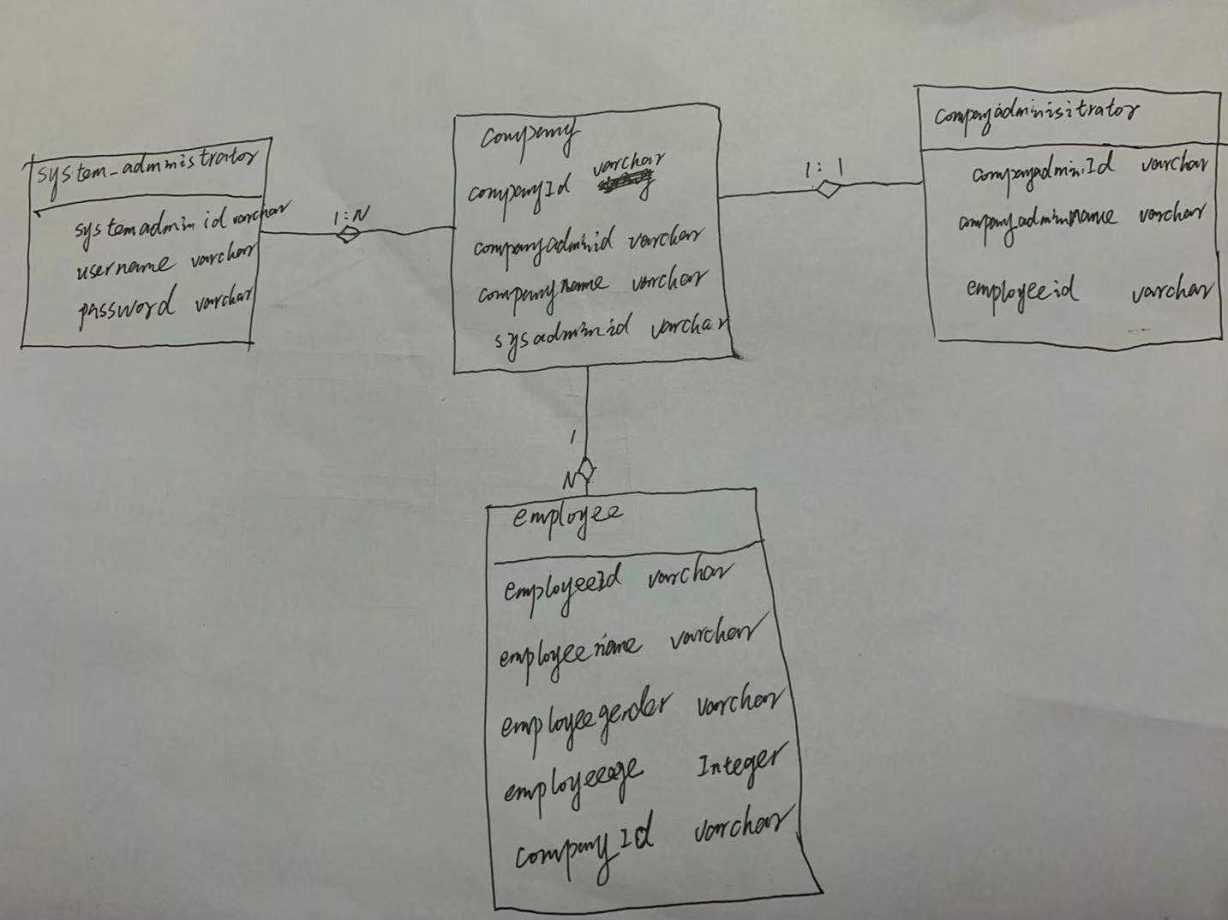 system_administrator
systemadminid varchar
username varchar
password varchar
1:N
company
companyId varchar
companyadminid varchar
companyname varchar
sysadminid varchar
1:1
companyadminisitrator
companyadminId varchar
companyadminname varchar
employeeid varchar
1
N
employee
employeeId varchar
employeename varchar
employeegender varchar
employeeage Integer
companyId varchar